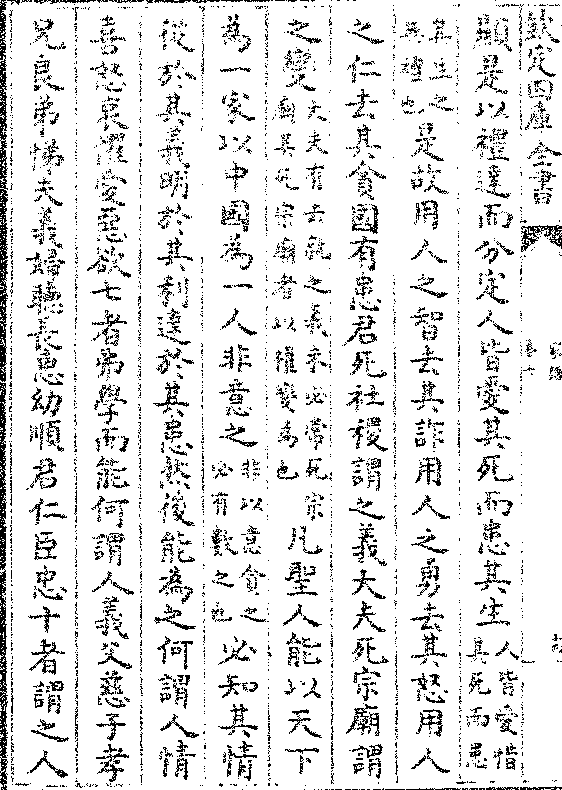 欽定四庫全書
顯是以禮達而分定人皆愛其死而患其生人皆愛惜其死而患
其生之無禮也是故用人之智去其詐用人之勇去其怒用人
之仁去其貪國有患君死社稷謂之義大夫死宗廟謂
之變大夫有去就之義未必常死宗廟其死宗廟者以權變為也凡聖人能以天下
為一家以中國為一人非意之非以意貪之必有數之也必知其情
從於其義明於其利達於其患然後能為之何謂人情
喜怒哀懼愛惡欲七者弗學而能何謂人義父慈子孝
兄良弟悌夫義婦聽長惠幼順君仁臣忠十者謂之人